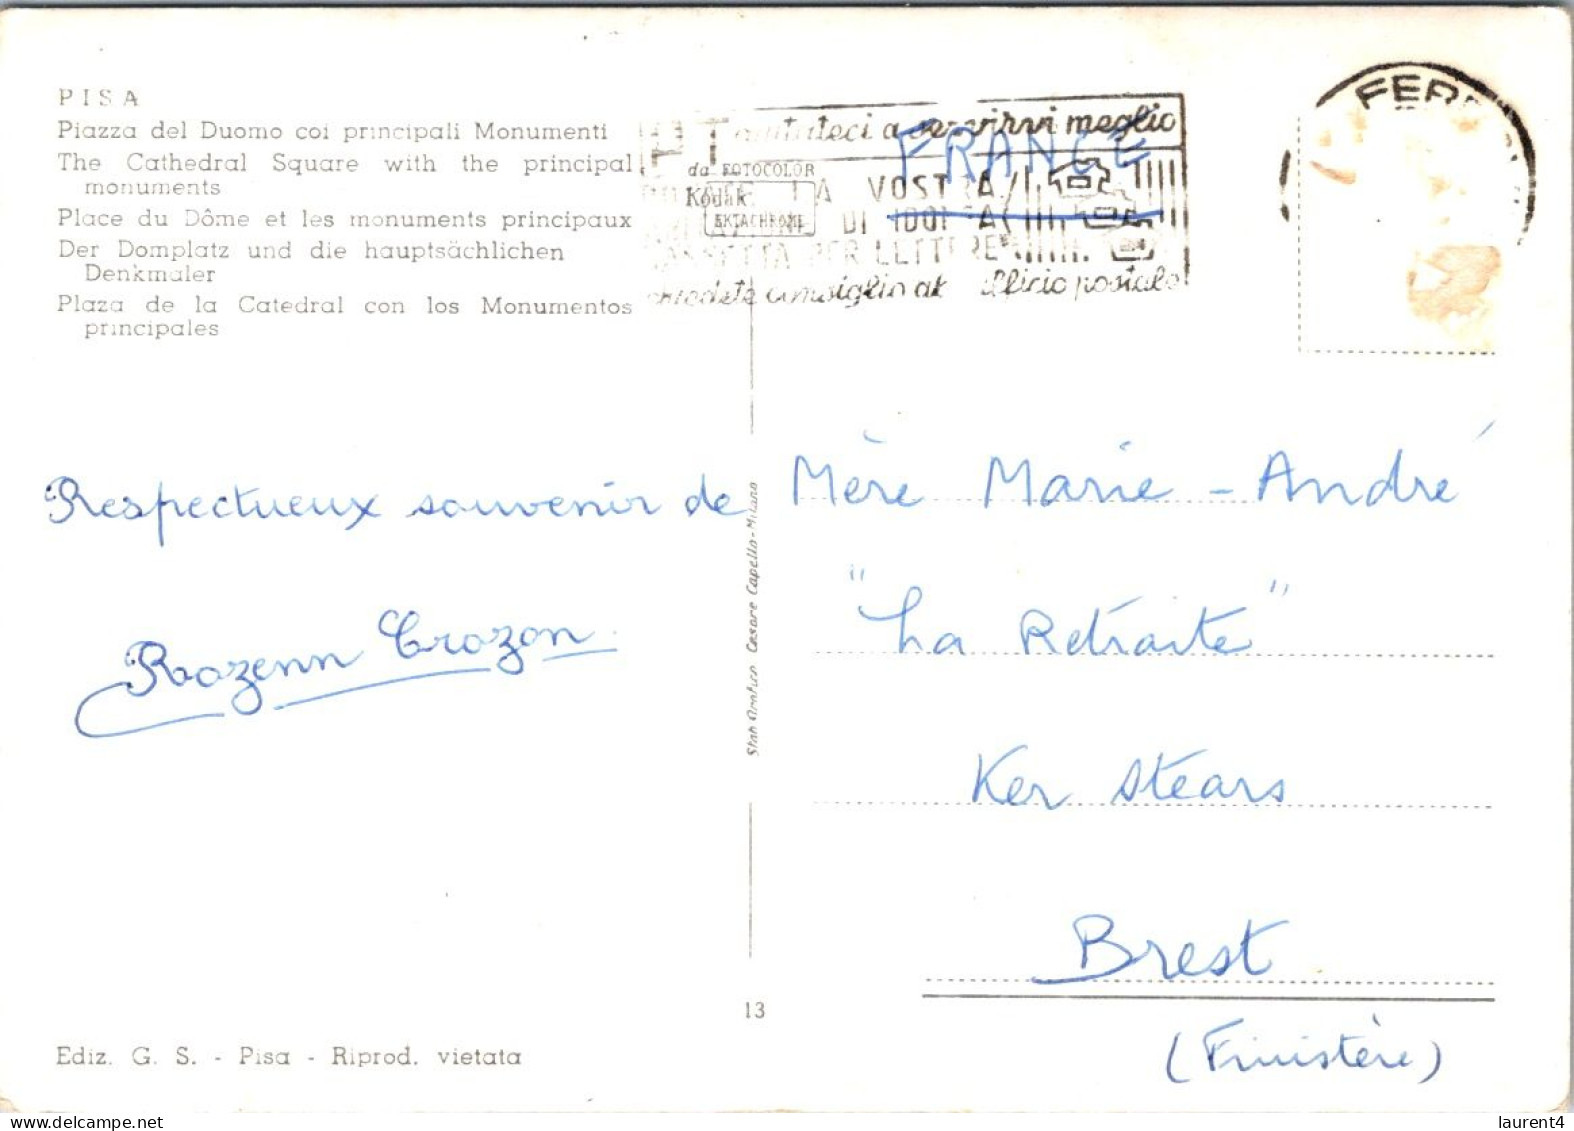 PISA
Piazza del Duomo coi principali Monumenti
The Cathedral Square with the principal
monuments
Place du Dôme et les monuments principaux
Der Domplatz und die hauptsächlichen
Denkmaler
Plaza de la Catedral con los Monumentos
principales
a servirvi meglio
FRANCE
da FOTOCOLOR
Kodak
EKTACHROME
LA VOSTRA
DI
PER LETTERE
consiglio
ufficio postale
Respectueux souvenir de
Rozenn Crozon
Mère Marie-André
"La Retraite"
Ker Stears
Brest
(Finistère)
Stab. Arturo Cesare Capello-Milano
13
Ediz. G. S. - Pisa - Riprod. vietata
laurent4